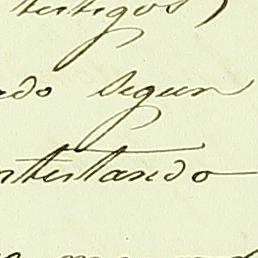 testigos)
ado segun
ntestando